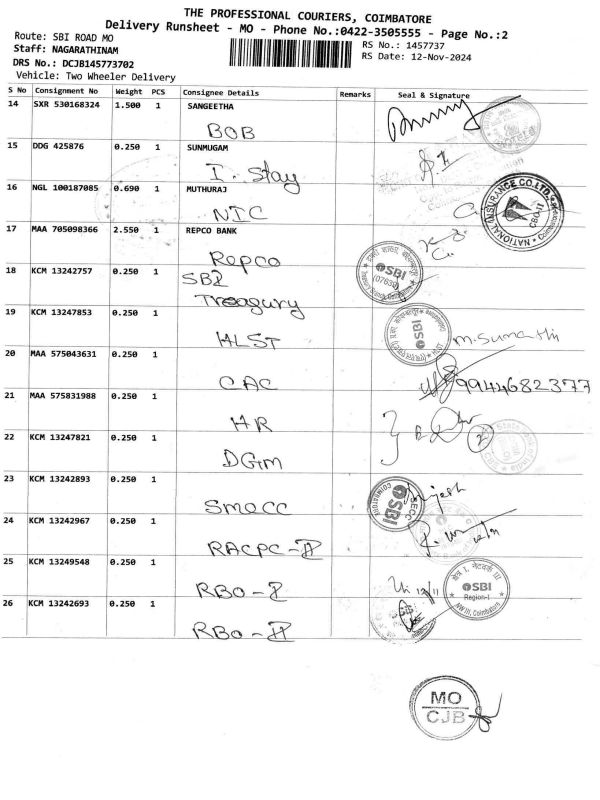 THE PROFESSIONAL COURIERS, COIMBATORE
Delivery Runsheet - MO - Phone No.:0422-3505555 - Page No.:2
Route: SBI ROAD MO
RS No.: 1457737
Staff: NAGARATHINAM
RS Date: 12-Nov-2024
DRS No.: DCJB145773702
Vehicle: Two Wheeler Delivery
S No Consignment No Weight PCS Consignee Details Remarks Seal & Signature
14 SXR 530168324 1.500 1 SANGEETHA
BOB
15 DDG 425876 0.250 1 SUNMUGAM
I. Stay
16 NGL 100187085 0.690 1 MUTHURAJ
NIC
NATIONAL INSURANCE CO.LTD.
CBO-II
17 MAA 705098366 2.550 1 REPCO BANK
Repco
18 KCM 13242757 0.250 1 SBI
Treagury
SBI
19 KCM 13247853 0.250 1
HLST
SBI
M. Sumathi
20 MAA 575043631 0.250 1
CAC
9944682377
21 MAA 575831988 0.250 1
HR
22 KCM 13247821 0.250 1
DGM
23 KCM 13242893 0.250 1
SMECC
SBI
COIMBATORE
24 KCM 13242967 0.250 1
RACPC-II
25 KCM 13249548 0.250 1
RBO-I
12/11
SBI
Region-I
NW III, Coimbatore
26 KCM 13242693 0.250 1
RBO-II
MO
CJB